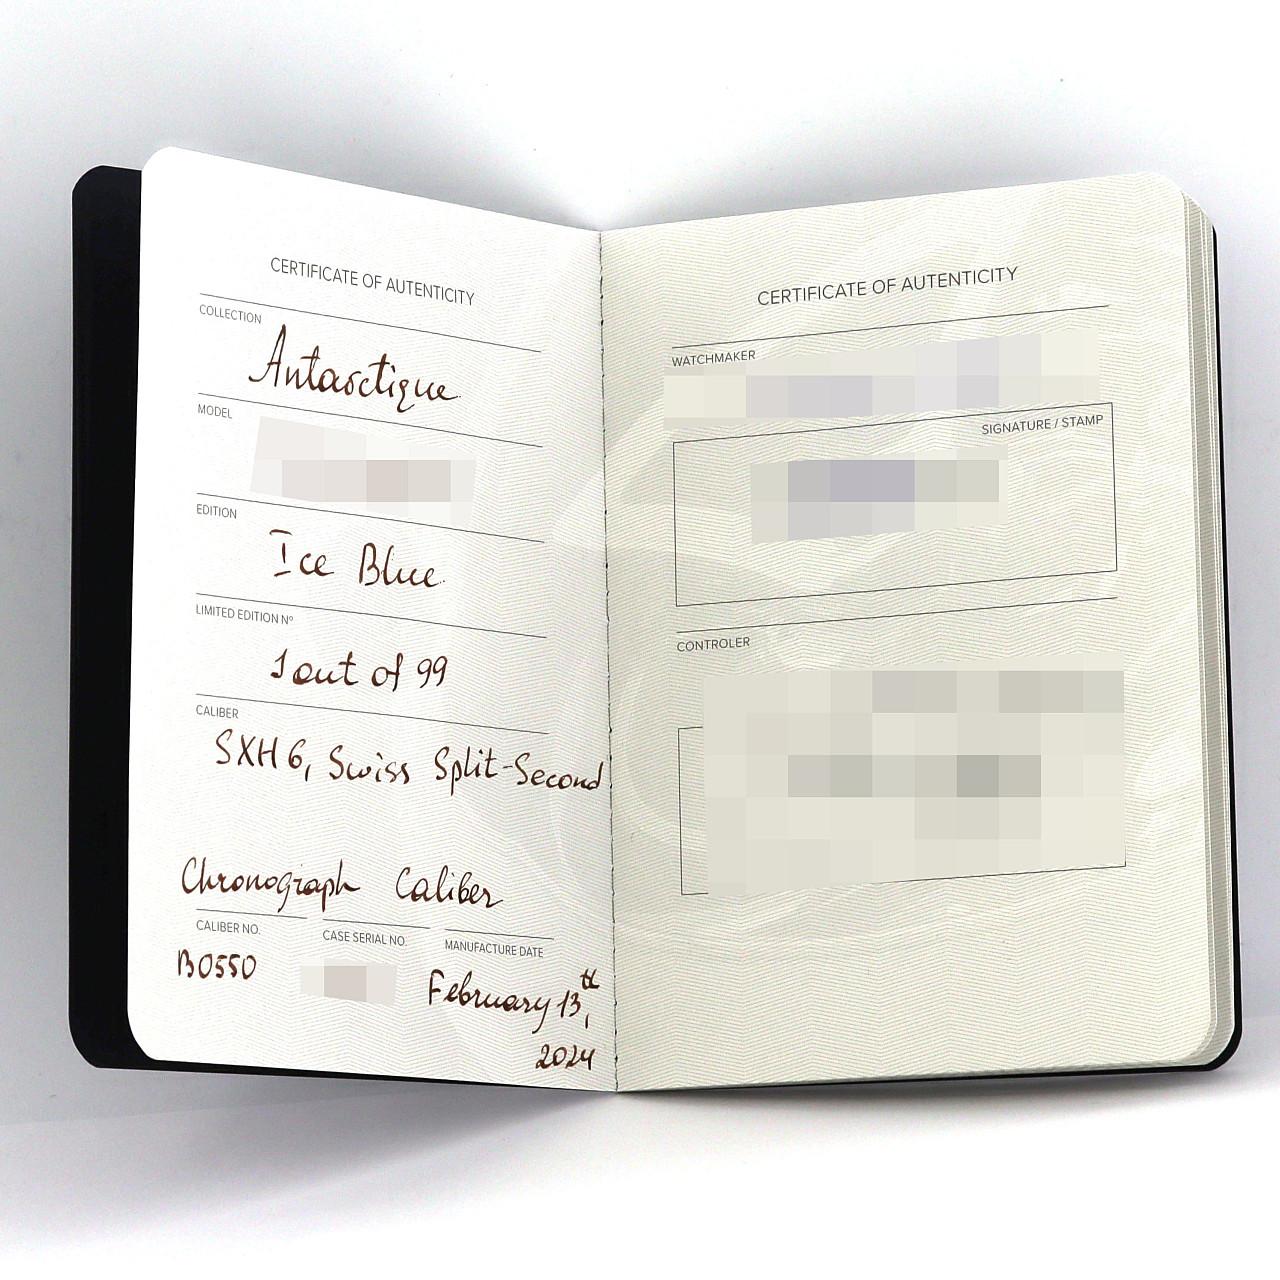 CERTIFICATE OF AUTENTICITY
COLLECTION
Antarctique
MODEL
EDITION
Ice Blue
LIMITED EDITION Nº
1 out of 99
CALIBER
SXH6, Swiss Split-Second
Chronograph Caliber
CALIBER NO.
B0550
CASE SERIAL NO.
MANUFACTURE DATE
February 13th,
2024
CERTIFICATE OF AUTENTICITY
WATCHMAKER
SIGNATURE / STAMP
CONTROLER